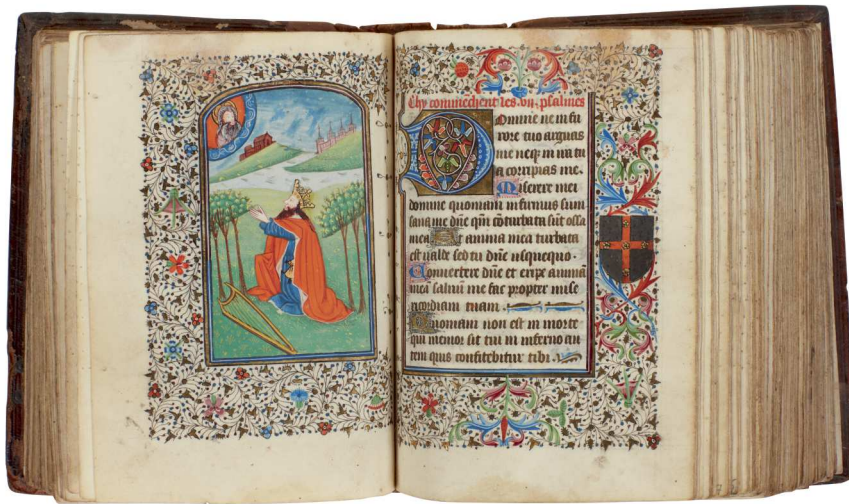 Chy commechent les .vii. psalmes
Domine ne in fu
rore tuo arguas
me neq; in ira tu
a corripias me.
Miserere mei
domine quoniam infirmus sum
sana me dñe qm̃ cõturbata sũt ossa
mea Et anima mea turbata
est ualde sed tu dñe usquequo.
Conuertere dñe et eripe animã
meã saluũ me fac propter mise
ricordiam tuam.
Quoniam non est in morte
qui memor sit tui in inferno au
tem quis confitebitur tibi.